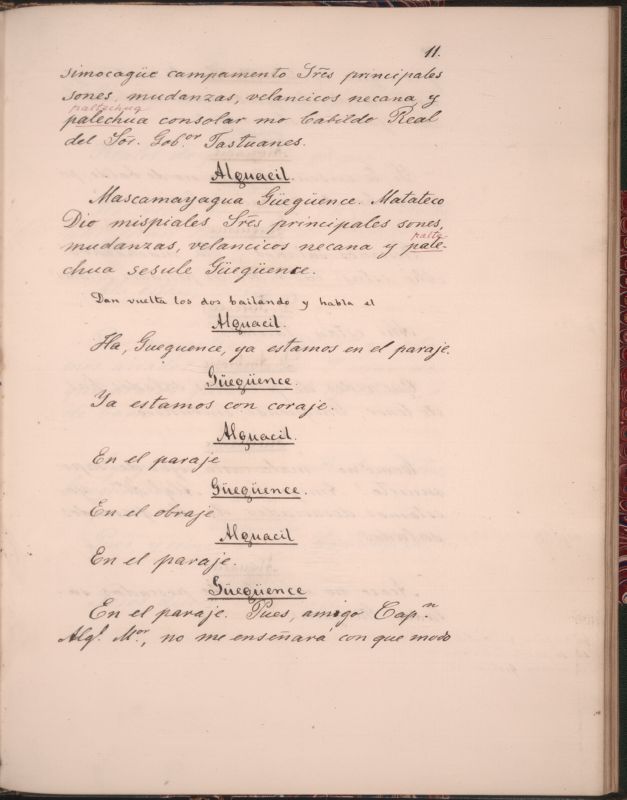 11.
simocagüe campamento Sres principales
sones, mudanzas, velancicos necana y
paltechua
palechua consolar mo Cabildo Real
del Sor. Gobor Tastuanes.
Alguacil.
Mascamayagua Güegüence. Matateco
Dio mispiales Sres principales sones,
palte
mudanzas, velancicos necana y pale-
chua sesule Güegüence.
Dan vuelta los dos bailando y habla el
Alguacil.
Ha, Gueguence, ya estamos en el paraje.
Güegüence
Ya estamos con coraje.
Alguacil.
En el paraje
Güegüence.
En el obraje
Alguacil
En el paraje.
Güegüence
En el paraje. Pues, amigo Capn.
Algl. Mor, no me enseñará con que modo